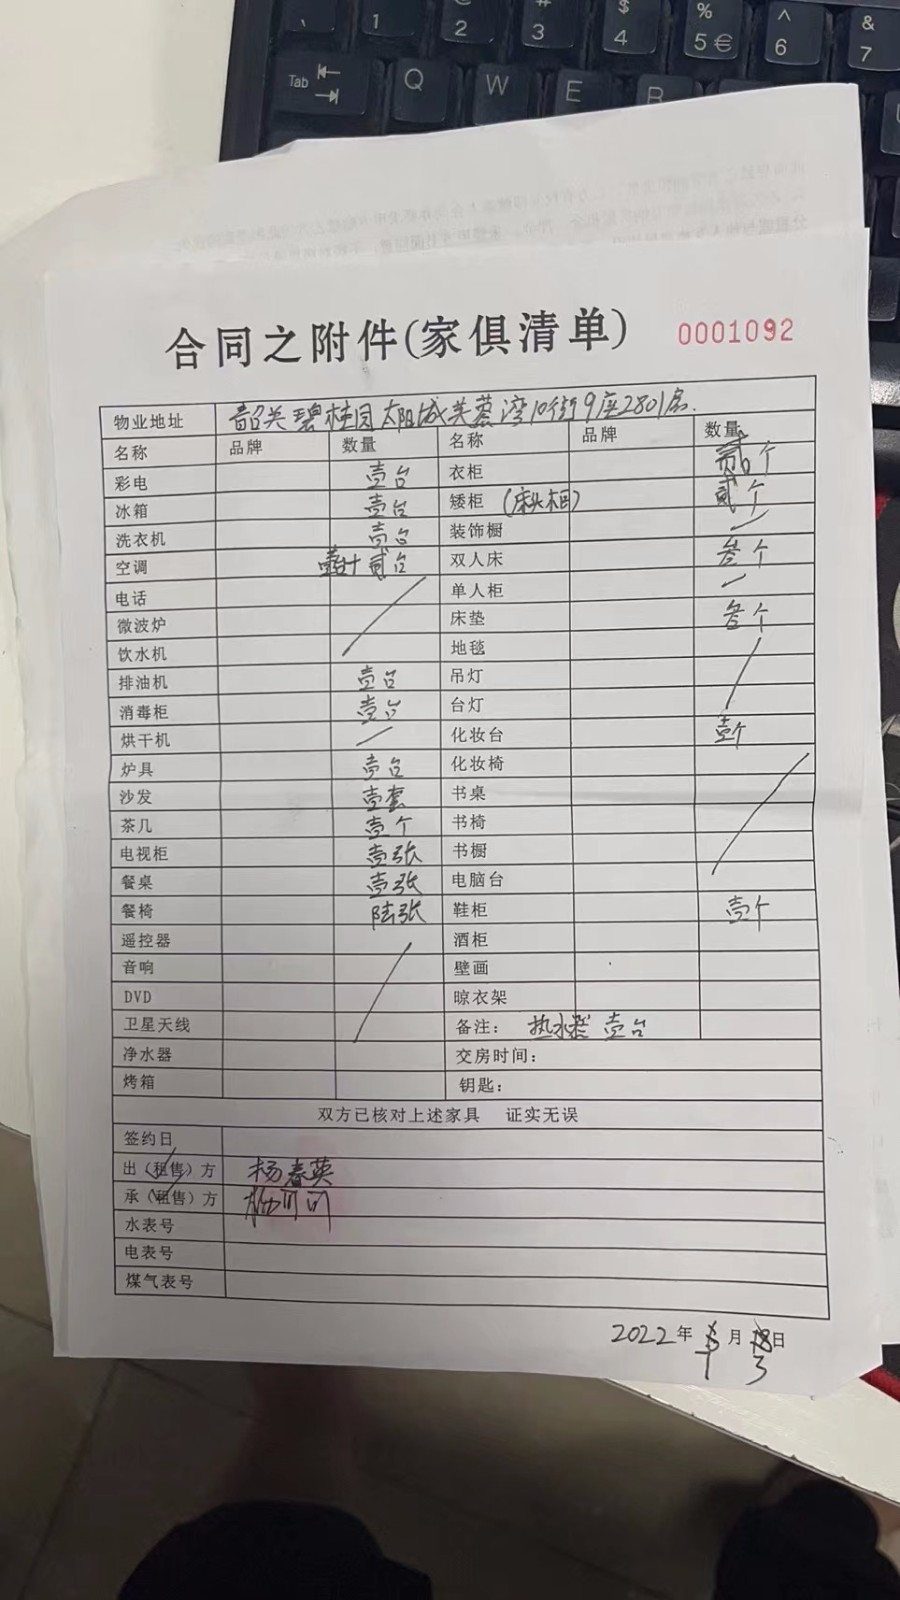 Tab Q W E R
1 2 3 4 5 € 6 7
# $ % ^ &
合同之附件(家俱清单) 0001092
物业地址 韶关碧桂园太阳城芙蓉湾10街9座2801房.
名称 品牌 数量 名称 品牌 数量
彩电 壹台 衣柜 贰个
冰箱 壹台 矮柜 (床头柜) 贰个
洗衣机 壹台 装饰橱
空调 贰台 双人床 叁个
电话 单人柜
微波炉 床垫 叁个
饮水机 地毯
排油机 壹台 吊灯
消毒柜 壹台 台灯
烘干机 化妆台 壹个
炉具 壹台 化妆椅
沙发 壹套 书桌
茶几 壹个 书椅
电视柜 壹张 书橱
餐桌 壹张 电脑台
餐椅 陆张 鞋柜 壹个
遥控器 酒柜
音响 壁画
DVD 晾衣架
卫星天线 备注: 热水器 壹台
净水器 交房时间:
烤箱 钥匙:
双方已核对上述家具 证实无误
签约日
出(租售)方 杨春英
承(租售)方
水表号
电表号
煤气表号
2022年1月3日